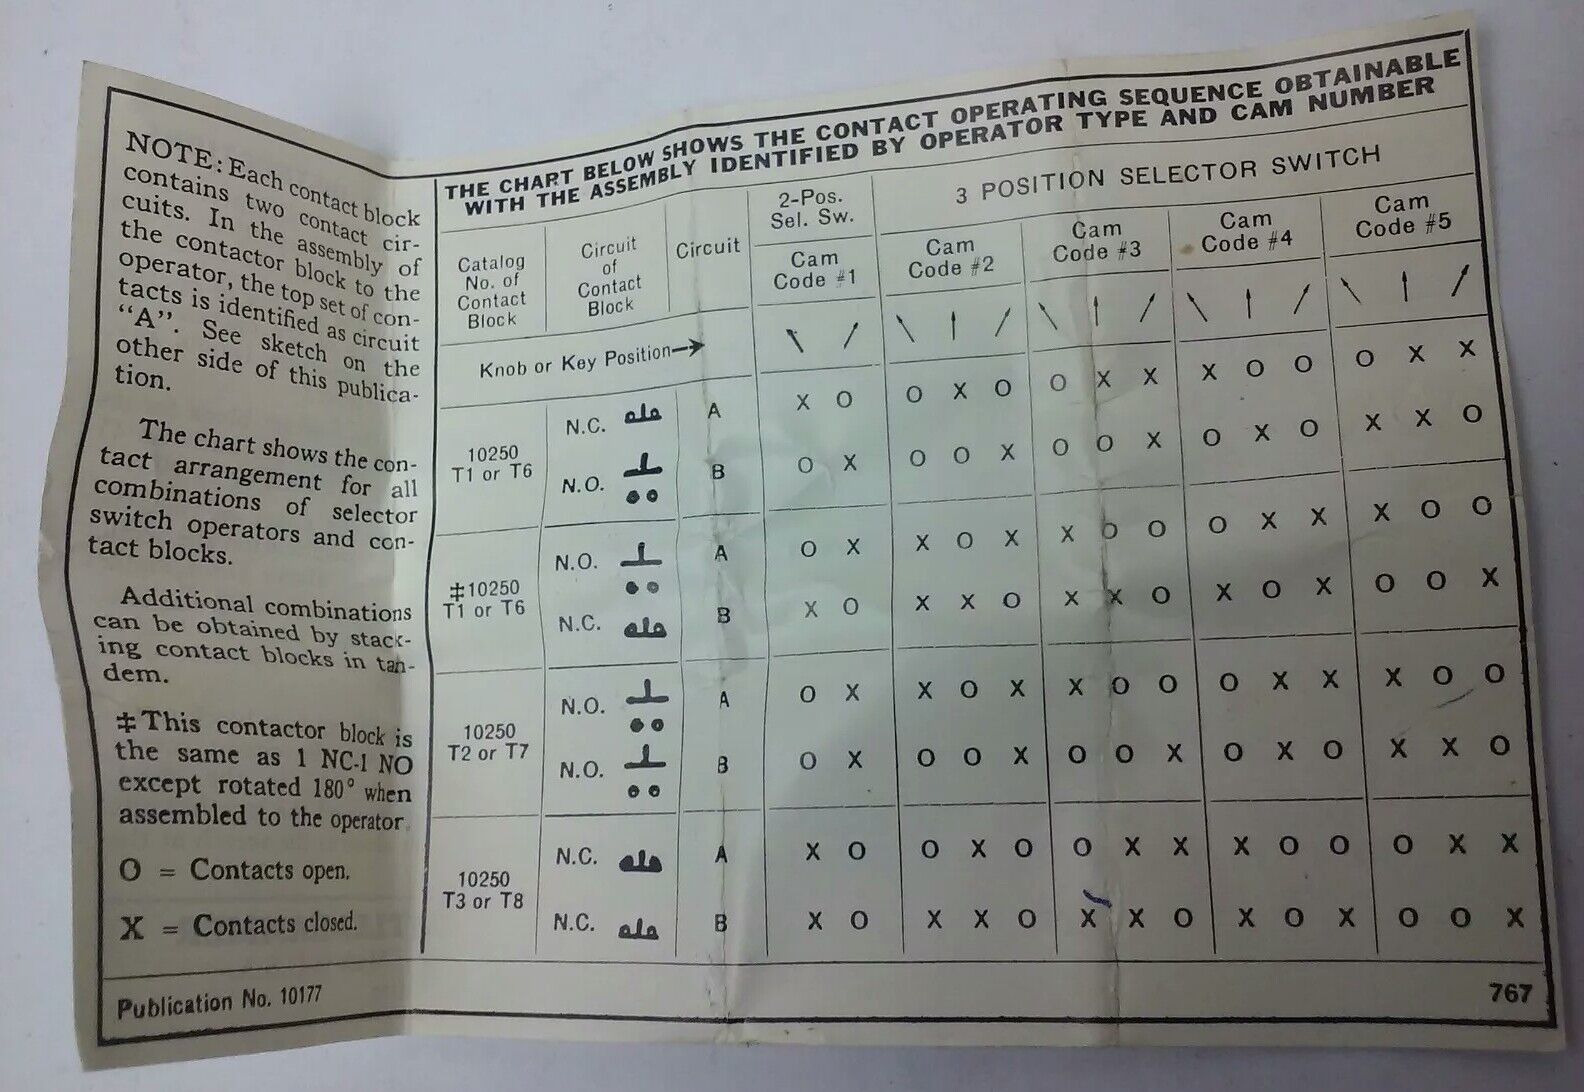 NOTE: Each contact block
contains two contact cir-
cuits. In the assembly of
the contactor block to the
operator, the top set of con-
tacts is identified as circuit
“A”. See sketch on the
other side of this publica-
tion.
The chart shows the con-
tact arrangement for all
combinations of selector
switch operators and con-
tact blocks.
Additional combinations
can be obtained by stack-
ing contact blocks in tan-
dem.
‡This contactor block is
the same as 1 NC-1 NO
except rotated 180° when
assembled to the operator.
O = Contacts open.
X = Contacts closed.
THE CHART BELOW SHOWS THE CONTACT OPERATING SEQUENCE OBTAINABLE
WITH THE ASSEMBLY IDENTIFIED BY OPERATOR TYPE AND CAM NUMBER
Catalog
No. of
Contact
Block
Circuit
of
Contact
Block
Circuit
2-Pos.
Sel. Sw.
3 POSITION SELECTOR SWITCH
Cam
Code #1
Cam
Code #2
Cam
Code #3
Cam
Code #4
Cam
Code #5
Knob or Key Position→
10250
T1 or T6
N.C. A X O O X O O X X X O O O X X
N.O. B O X O O X O O X O X O X X O
‡10250
T1 or T6
N.O. A O X X O X X O O O X X X O O
N.C. B X O X X O X X O X O X O O X
10250
T2 or T7
N.O. A O X X O X X O O O X X X O O
N.O. B O X O O X O O X O X O X X O
10250
T3 or T8
N.C. A X O O X O O X X X O O O X X
N.C. B X O X X O X X O X O X O O X
Publication No. 10177
767